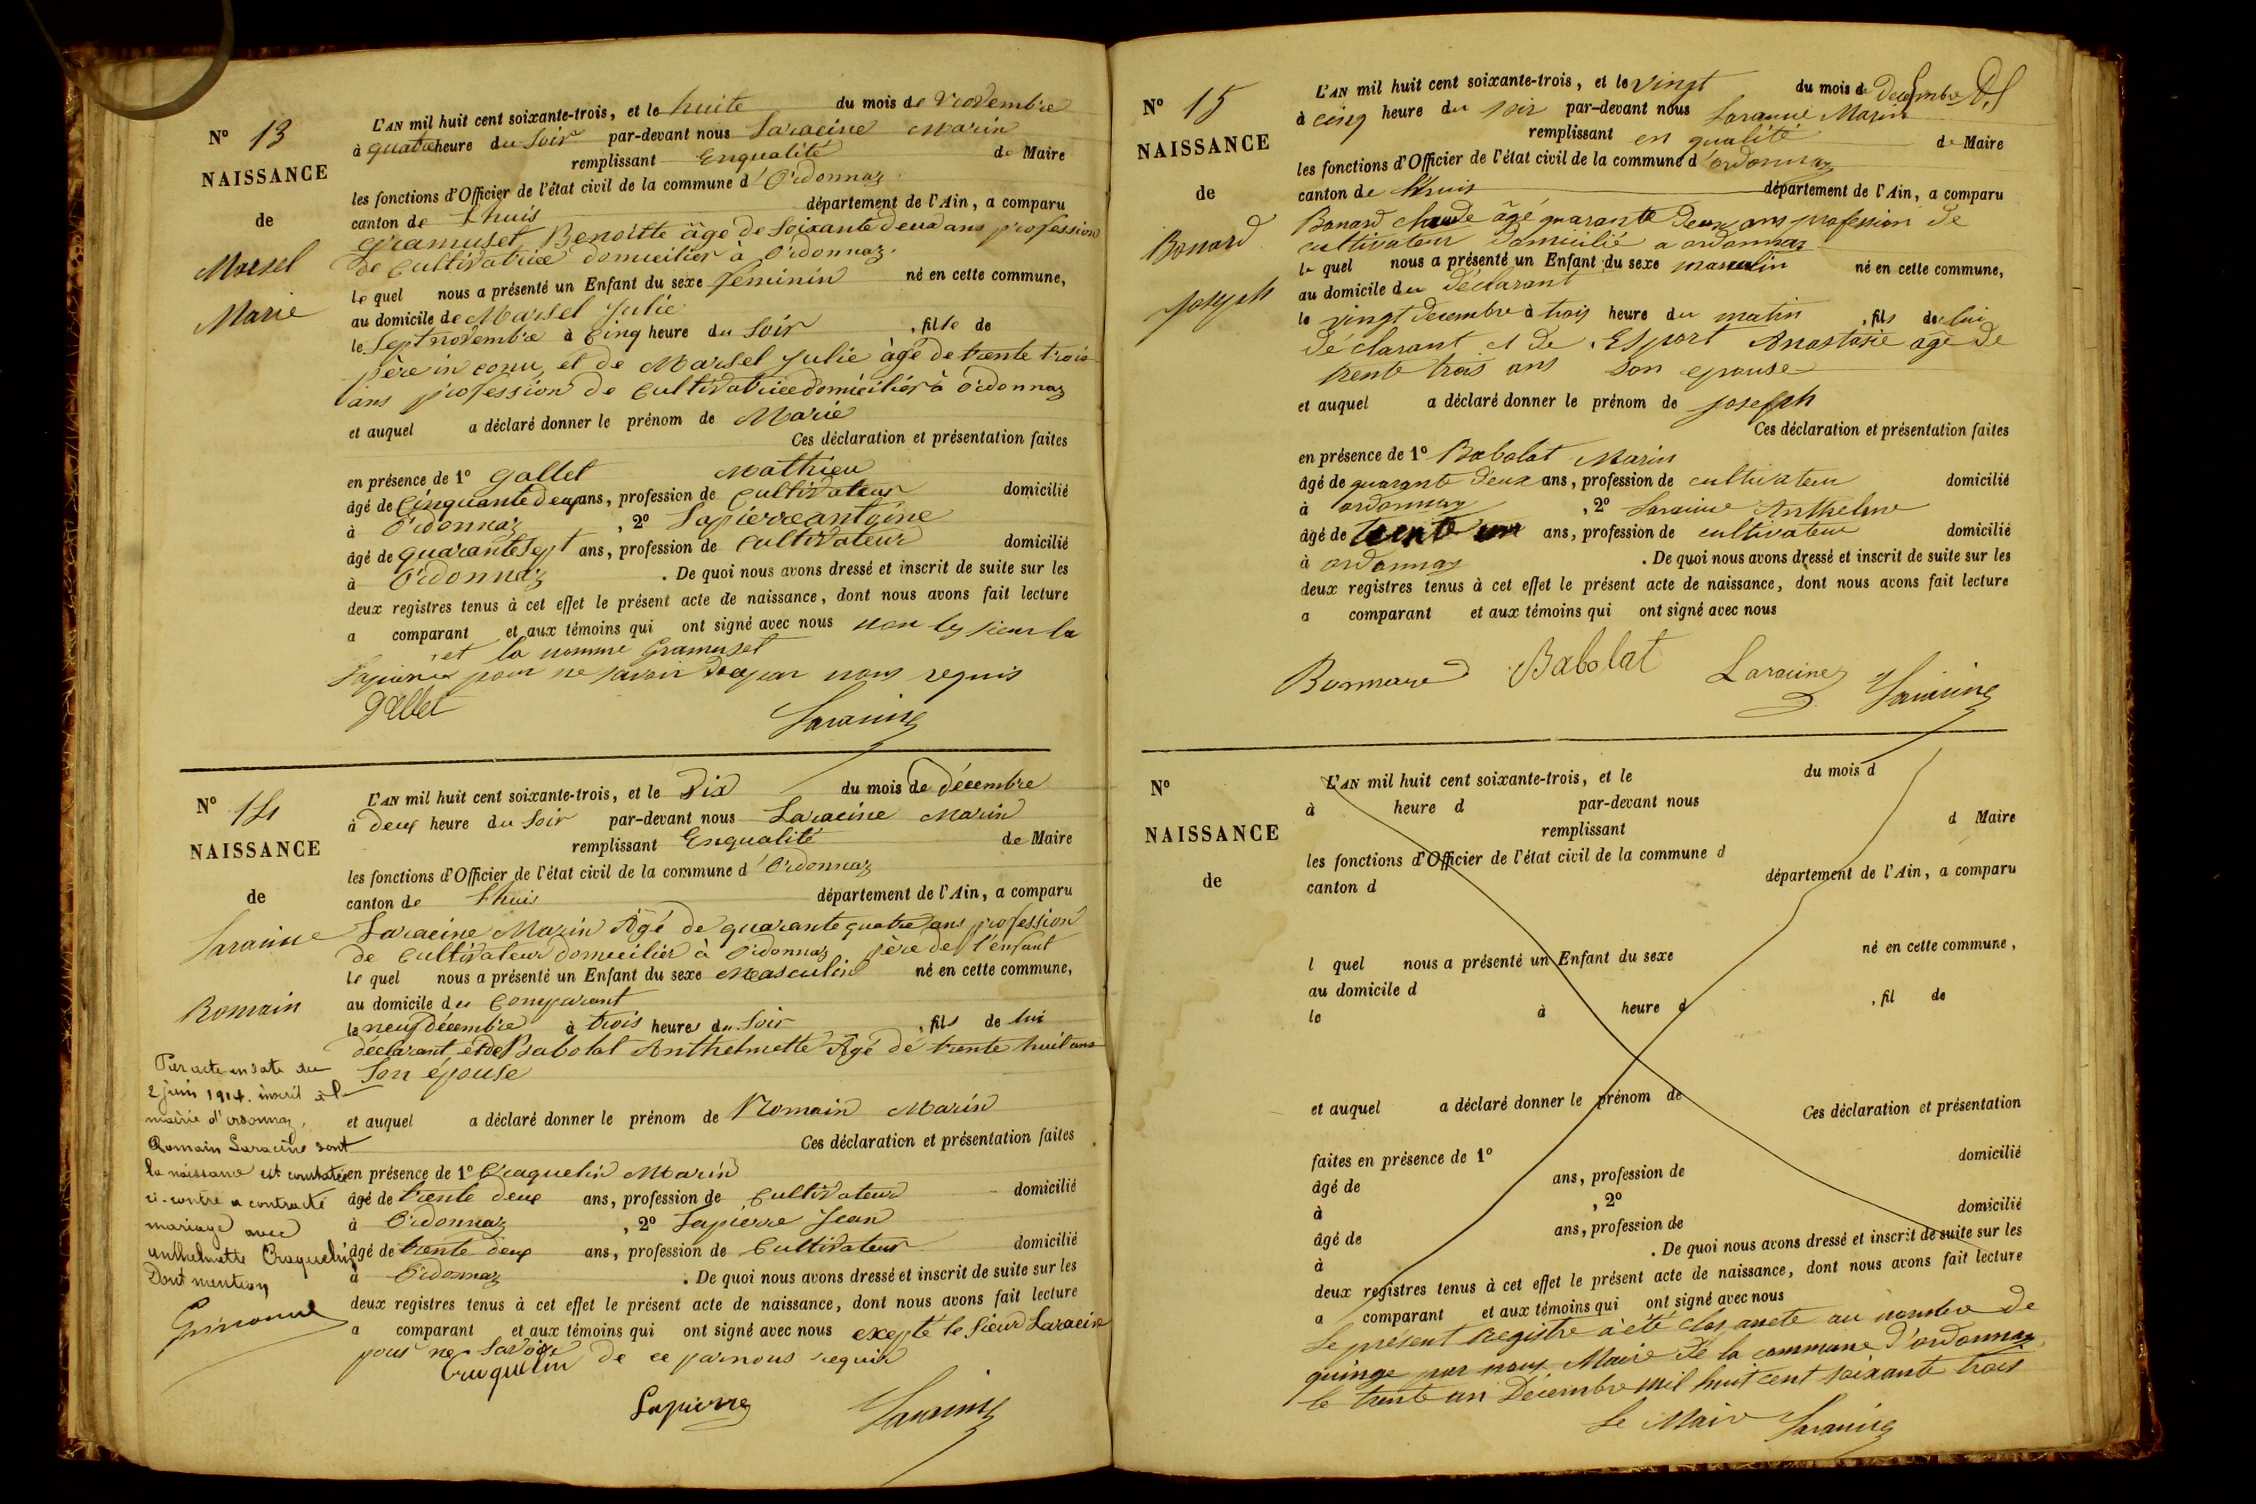 N° 13
NAISSANCE
de
Marsel
Marie
L'AN mil huit cent soixante-trois, et le huite du mois de Novembre
à quatre heure du Soir par-devant nous Laracine Marin
remplissant Enqualité de Maire
les fonctions d'Officier de l'état civil de la commune d'Ordonnaz
canton de Lhuis département de l'Ain, a comparu
Gramuset Benoitte âge de Soixante deux ans profession
de Cultivatrice domicilier à Ordonnaz.
le quel nous a présenté un Enfant du sexe féminin né en cette commune,
au domicile de Marsel Julie
le Sept novembre à Cinq heure du Soir, fille de
père in conu, et de Marsel Julie âgé de trente trois
ans profession de Cultivatrice domicilier à Ordonnaz
et auquel a déclaré donner le prénom de Marie
Ces déclaration et présentation faites
en présence de 1° Gallet Mathieu
âgé de Cinquante deux ans, profession de Cultivateur domicilié
à Ordonnaz, 2° Lapierre antoine
âgé de quarante Sept ans, profession de Cultivateur domicilié
à Ordonnaz. De quoi nous avons dressé et inscrit de suite sur les
deux registres tenus à cet effet le présent acte de naissance, dont nous avons fait lecture
a comparant et aux témoins qui ont signé avec nous non le sieur la
et la nomme Gramuset
pour ne savoir de ce par nous requis
Gallet
Laracine
N° 14
NAISSANCE
de
Laracine
Romain
L'AN mil huit cent soixante-trois, et le Dix du mois de décembre
à deux heure du Soir par-devant nous Laracine Marin
remplissant Enqualité de Maire
les fonctions d'Officier de l'état civil de la commune d'Ordonnaz
canton de Lhuis département de l'Ain, a comparu
Laracine Marin Âgé de quarante quatre ans profession
de Cultivateur domicilier à Ordonnaz père de l'enfant
le quel nous a présenté un Enfant du sexe Masculin né en cette commune,
au domicile du Comparant
le neuf décembre à trois heures du Soir, fils de lui
déclarant, et de Babolat Anthelmette Âgé de trente huit ans
Son épouse
et auquel a déclaré donner le prénom de Romain Marin
Ces déclaration et présentation faites
en présence de 1° Craquelin Marin
âgé de trente deux ans, profession de Cultivateur domicilié
à Ordonnaz, 2° Lapierre Jean
âgé de trente deux ans, profession de Cultivateur domicilié
à Ordonnaz. De quoi nous avons dressé et inscrit de suite sur les
deux registres tenus à cet effet le présent acte de naissance, dont nous avons fait lecture
a comparant et aux témoins qui ont signé avec nous exepté le Sieur Laracine
pour ne Savoir de ce par nous requis
Craquelin
Lapierre
Laracine
Par acte en date du
2 juin 1914. inscrit à la
mairie d'ordonnaz,
Romain Laracine dont
la naissance est constatée
ci-contre a contracté
mariage avec
Anthelmette Craquelin
Dont mention
N° 15
NAISSANCE
de
Bonard
Joseph
L'AN mil huit cent soixante-trois, et le vingt du mois de décembre
à cinq heure du soir par-devant nous Laracine Marin
remplissant en qualité de Maire
les fonctions d'Officier de l'état civil de la commune d'ordonnaz
canton de Lhuis département de l'Ain, a comparu
Bonard claude âgé quarante deux ans profession de
cultivateur domicilié a ordonnaz
le quel nous a présenté un Enfant du sexe masculin né en cette commune,
au domicile du déclarant
le vingt decembre à trois heure du matin, fils de lui
déclarant et de Esport Anastasie âgé de
trente trois ans son epouse
et auquel a déclaré donner le prénom de joseph
Ces déclaration et présentation faites
en présence de 1° Babolat Marin
âgé de quarante deux ans, profession de cultivateur domicilié
à ordonnaz, 2° Laracine Anthelme
âgé de trente un ans, profession de cultivateur domicilié
à ordonnaz. De quoi nous avons dressé et inscrit de suite sur les
deux registres tenus à cet effet le présent acte de naissance, dont nous avons fait lecture
a comparant et aux témoins qui ont signé avec nous
Babolat Laracine Laracine
N°
NAISSANCE
de
L'AN mil huit cent soixante-trois, et le du mois d
à heure d par-devant nous
remplissant d Maire
les fonctions d'Officier de l'état civil de la commune d
canton d département de l'Ain, a comparu
l quel nous a présenté un Enfant du sexe né en cette commune,
au domicile d
le à heure d, fil de
et auquel a déclaré donner le prénom de
Ces déclaration et présentation
faites en présence de 1° domicilié
âgé de ans, profession de
à, 2° domicilié
âgé de ans, profession de
à. De quoi nous avons dressé et inscrit de suite sur les
deux registres tenus à cet effet le présent acte de naissance, dont nous avons fait lecture
a comparant et aux témoins qui ont signé avec nous
Le présent Registre à été clos arreté au nombre de
quinze par nous Maire de la commune d'ordonnaz
le trente un Décembre mil huit cent soixante trois
Le Maire Laracine